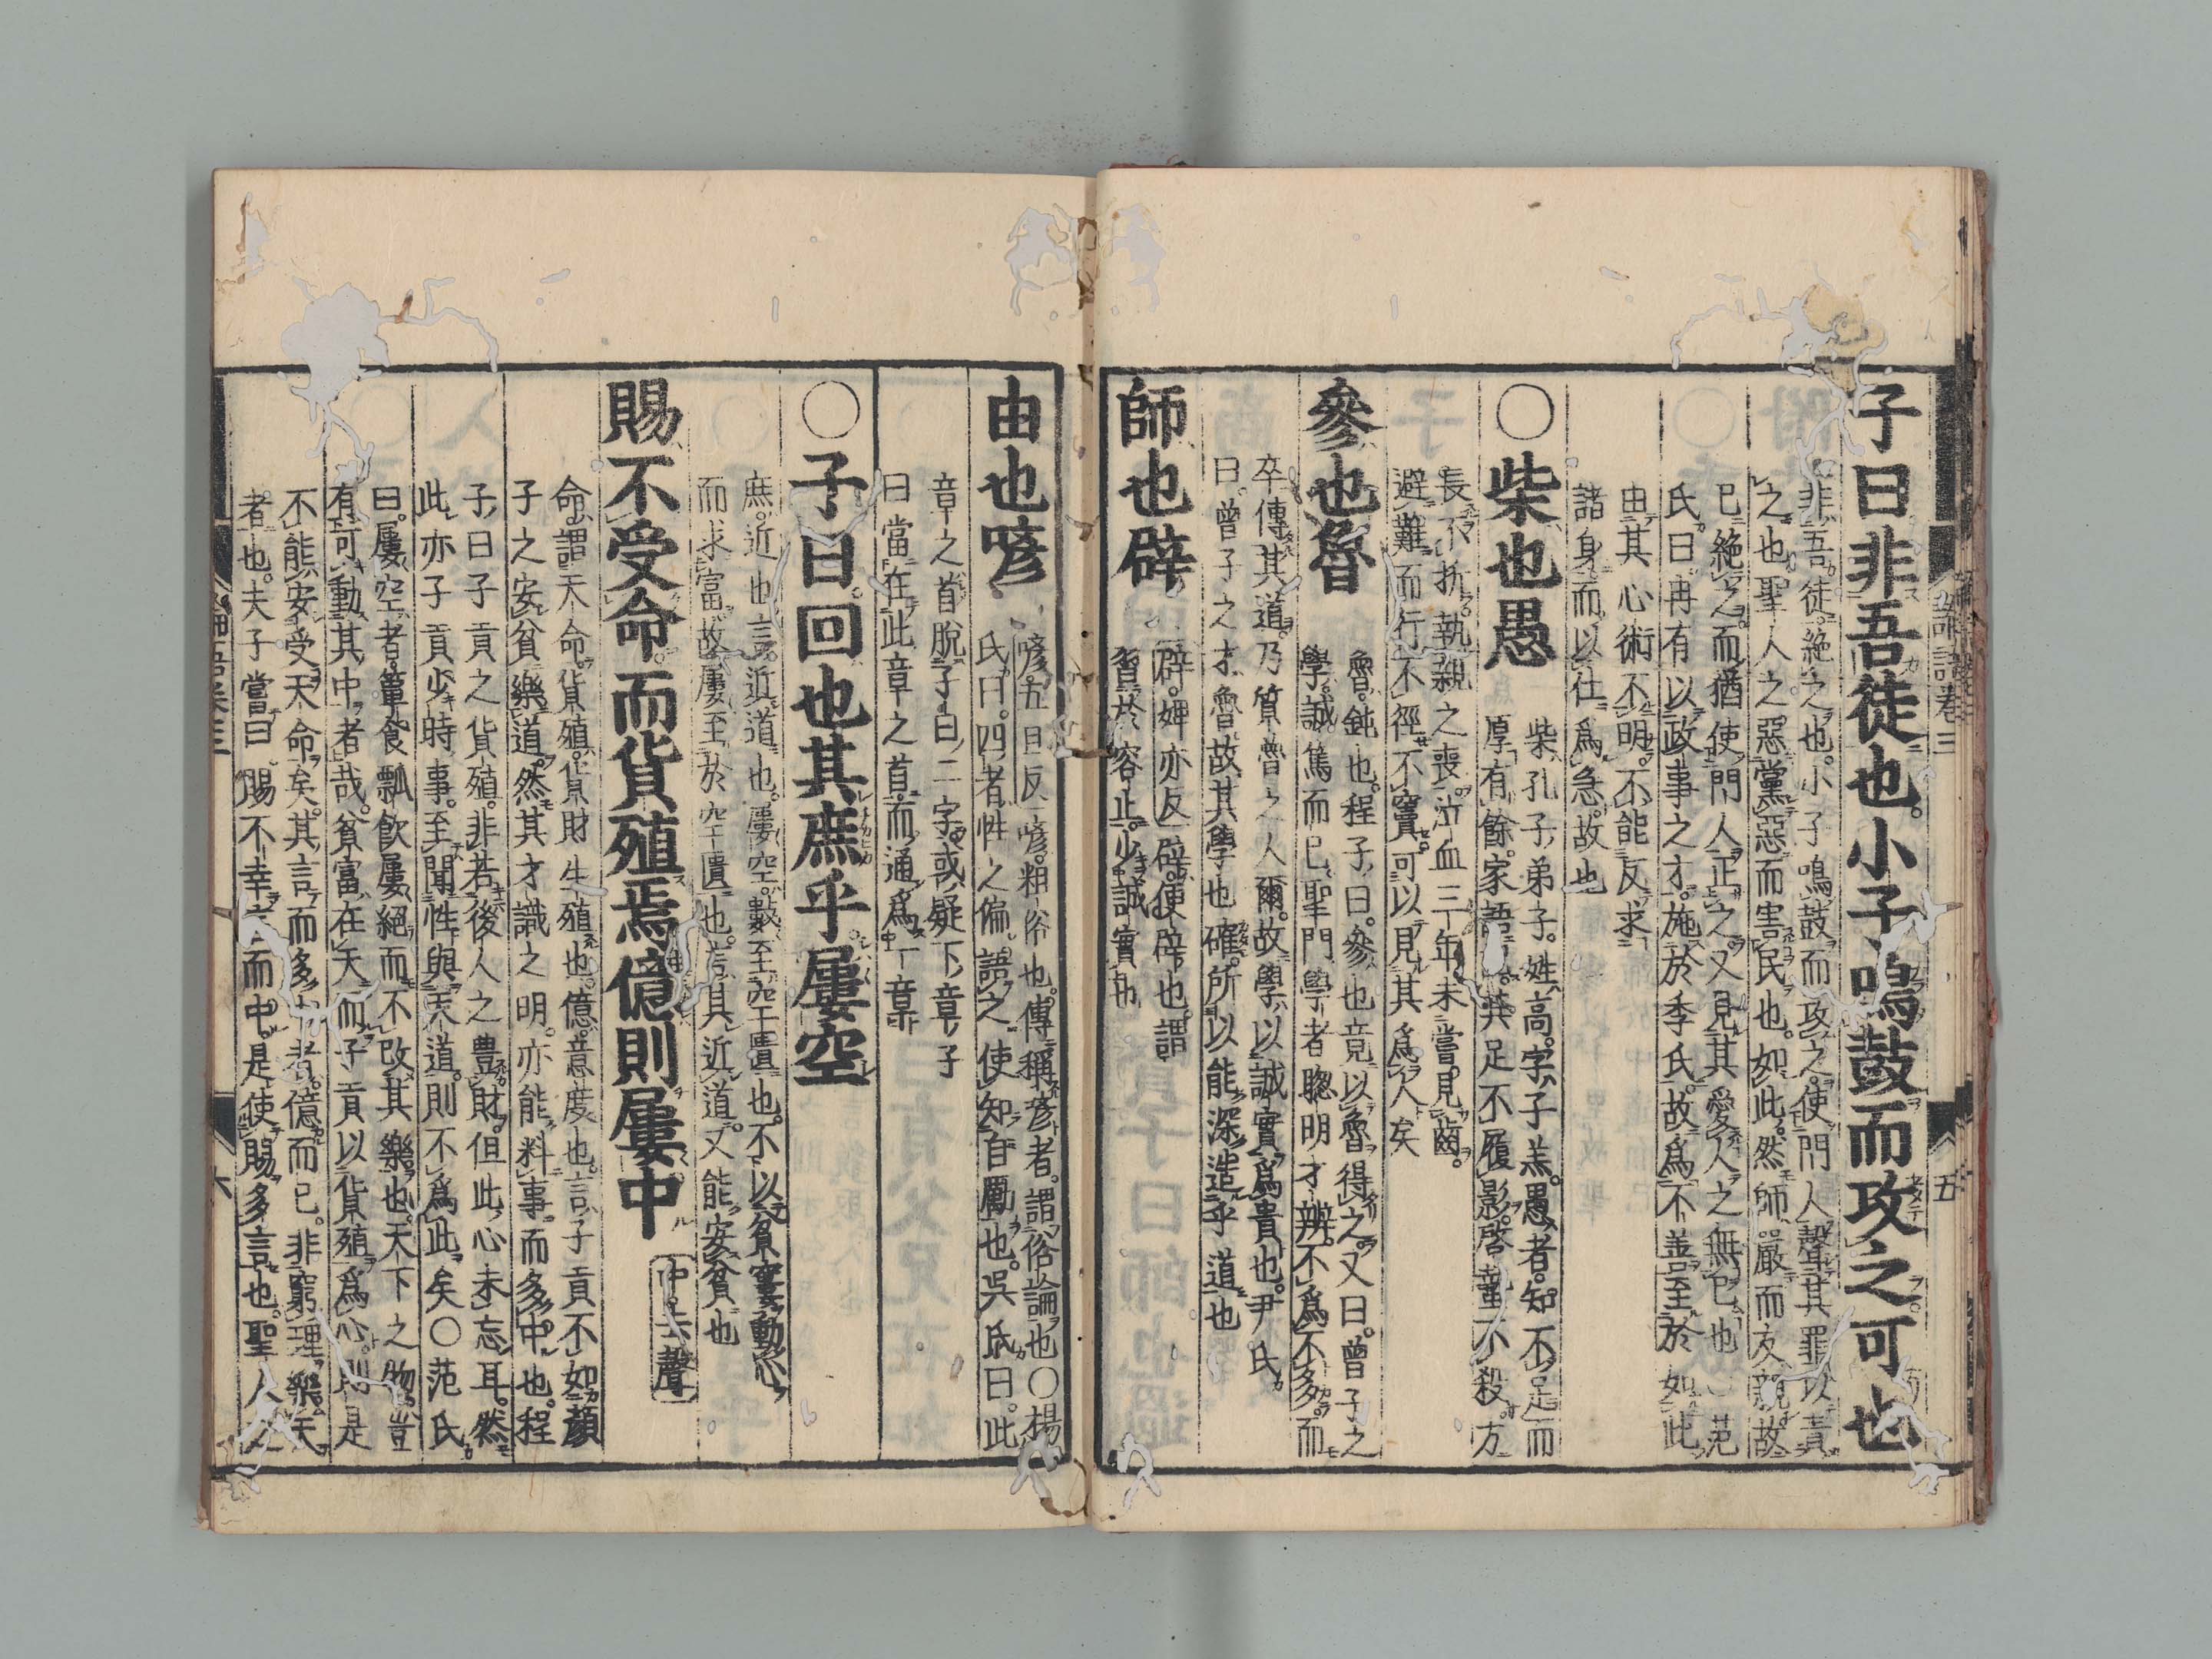 子曰非吾徒也。小子鳴鼓而攻之可也
非吾徒。絶之也。小子鳴鼓而攻之。使門人聲其罪以責
之也聖人之惡黨惡而害民也。如此。然師嚴而友親。故
已絶之。而猶使門人正之。又見其愛人之無已也 范
氏。曰冉有以政事之才。施於季氏。故爲不善至於如此
由其心術不明。不能反求
諸身。而以仕爲急。故也
〇柴也愚
柴孔子弟子。姓高。字子羔。愚者。知不足而
厚有餘。家語 其足不履影。啓蟄不殺。方
長不折。執親之喪。泣血三年未嘗見齒。
避難而行不徑不竇。可以見其爲人矣
參也魯
魯。鈍也。程子曰。參也竟以魯得之。又曰。曾子之
學。誠篤而已。聖門學者聰明才辨。不爲不多。而
卒傳其道。乃質魯之人爾。故學以誠實爲貴也。尹氏
曰。曾子之才魯。故其學也確。所以能深造乎道也
師也辟
辟。婢亦反 辟。便辟也。謂
習於容止。少誠實也
由也喭
喭。五旦反 喭。粗俗也。傳稱喭者。謂俗論也〇楊
氏。曰。四者性之偏。語之。使知自勵也。呉氏曰。此
章之首脱子曰二字。或疑下章子
曰當在此章之首。而通爲一章
〇子曰。回也其庶乎。屢空
庶。近也言。近道也。屢空。數至空匱也。不以貧窶動心
而求富。故屢至於空匱也。言其近道。又能安貧也
賜不受命而貨殖焉億則屢中
中去聲
命謂天命。貨殖。貨財生殖也。億。意度也。言子貢不如顔
子之安貧樂道。然其才識之明。亦能料事而多中也。程
子曰子貢之貨殖。非若後人之豊財。但此心未忘耳。然
此亦子貢少時事。至聞性與天道。則不爲此矣〇范氏
曰。屢空者。簞食瓢飲屢絶而不改其樂也。天下之物。豈
有可動其中者哉。貧富在天。而子貢以貨殖爲心。則是
不能安受天命矣。其言而多中者。億而已。非窮理樂天
者也。夫子嘗曰 賜不幸言而中。是使賜多言也。聖人之